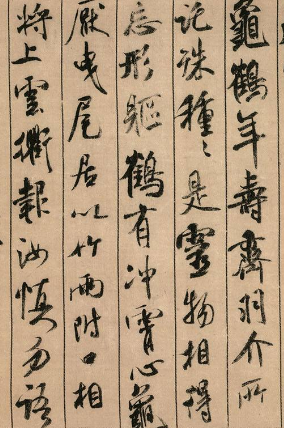 龜鶴年壽齊羽介所
託殊種々是靈物相得
忘形軀鶴有冲霄心龜
厭曳尾居以竹兩附口相
將上雲衢報汝慎勿語